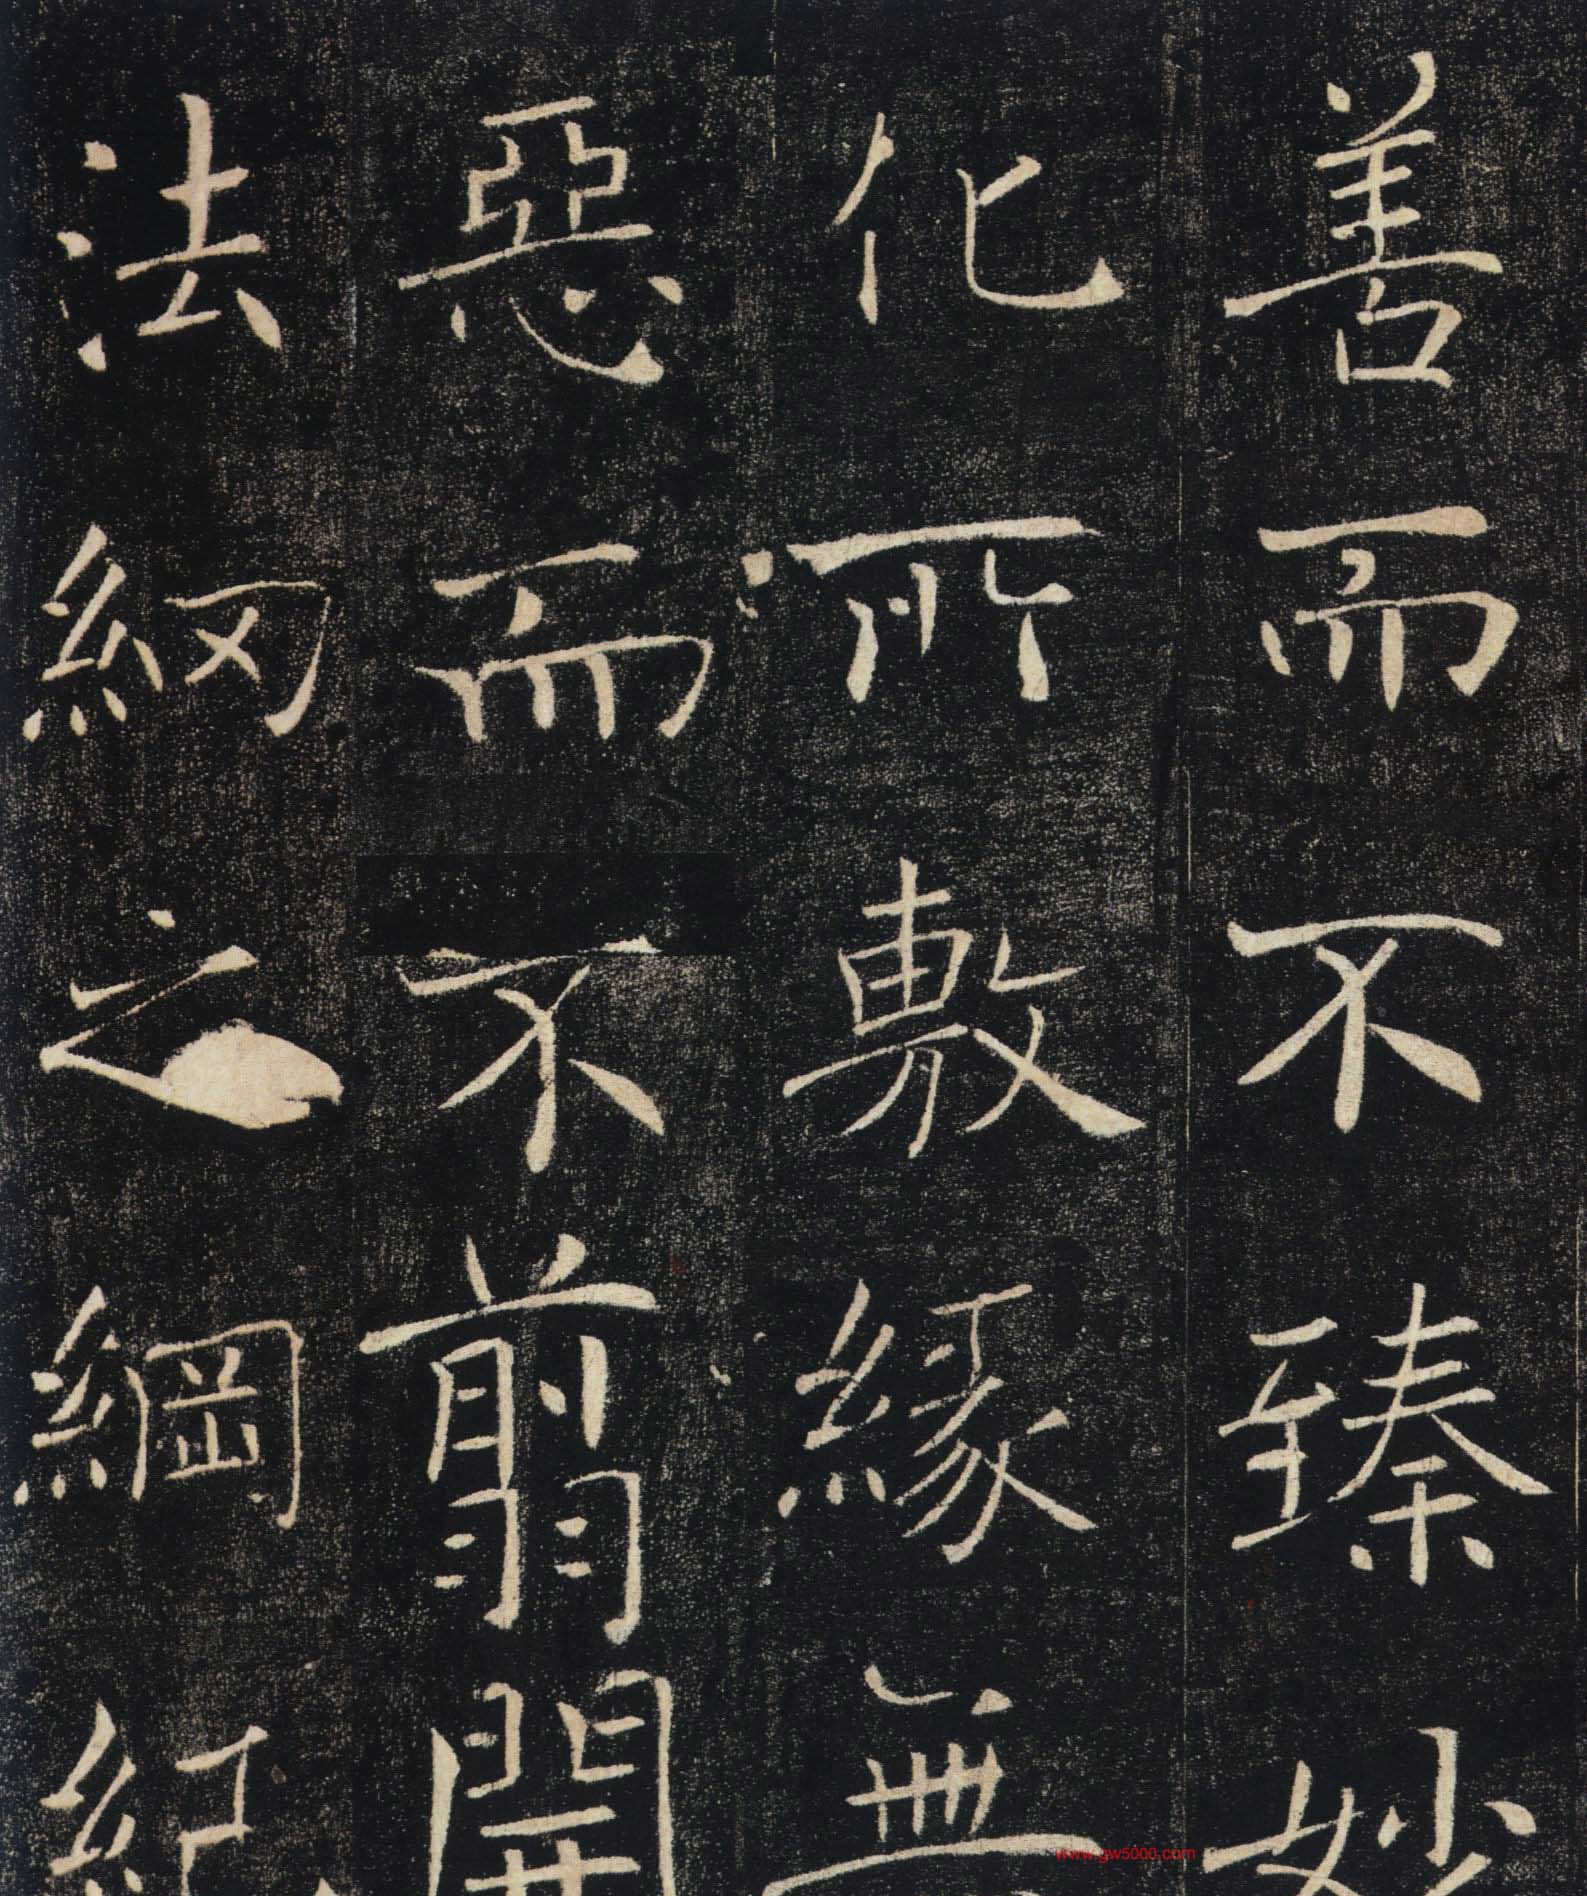 善而不臻妙
化所敷緣無
惡而不翦開
法網之綱紀
www.gw5000.com